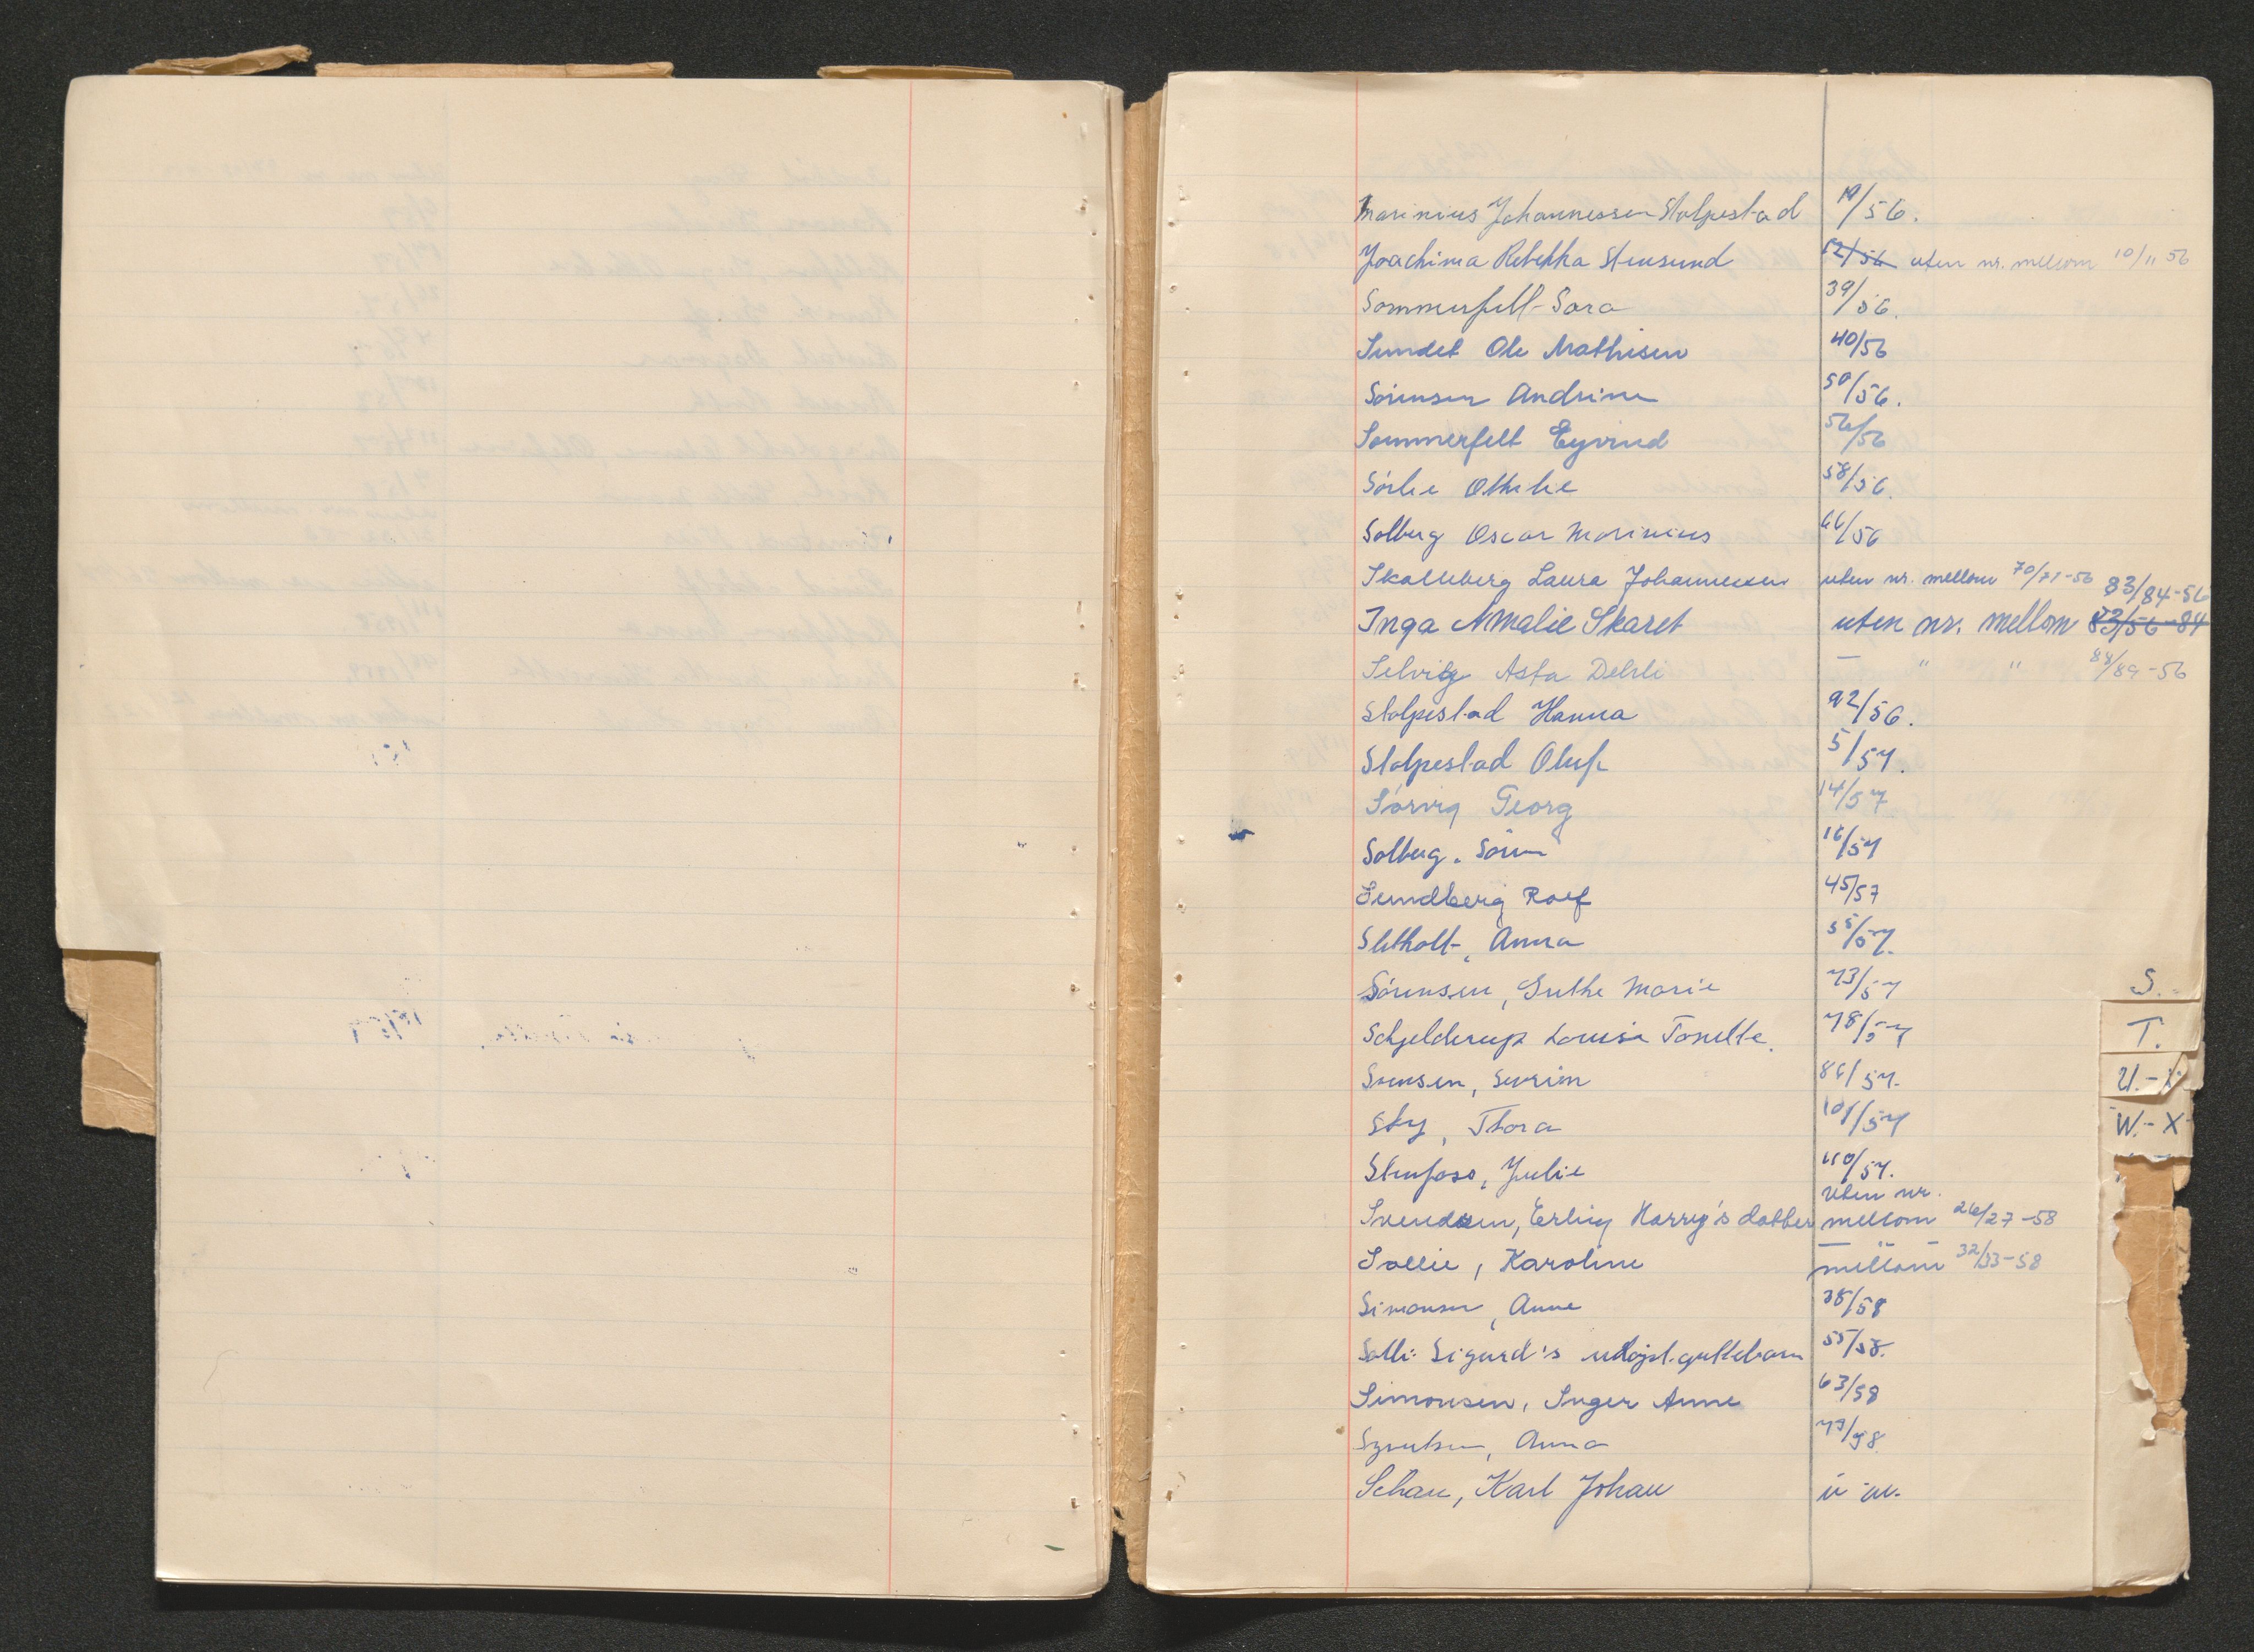 Marinius Johannessen Stolpestad 19/56.
Joachima Rebekka Stensund 12/56 uten nr. mellom 10/11 56
Sommerfelt Sara 39/56.
Sundet Ole Mathisen 40/56
Sörensen Andrine 50/56.
Sommerfelt Eyvind 56/56
Sörlie Othilie 58/56.
Solberg Oscar Marinius 66/56
Skalleberg Laura Johannessen uten nr. mellom 70/71-56
83/84-56
Inga Amalie Skaret uten nr. mellom 83/56-84
Selvig Asta Dehli — " " 88/89-56
Stolpestad Hanna 92/56.
Stolpestad Oluf 5/57.
Sörvig Georg 14/57
Solberg. Sören 16/57
Sundberg Rolf 45/57
Sletholt, Anna 55/57.
Sörensen, Grethe Marie 73/57
S.
Schjelderup Louise Tonette. 78/57
T.
Svensen, Severin 86/57.
U.-V.
Sky, Thora 101/57
W.-X
Stenfoss, Julie 110/57.
uten nr.
Svendsen, Erling Harry's datter mellom 26/27-58
Sollie, Karoline mellom 32/33-58
Simonsen, Anne 38/58
Solli: Sigurd's udöpt. guttebarn 55/58.
Simonsen, Inger Anne 63/58
Syvertsen, Anna 79/58.
Schau, Karl Johan